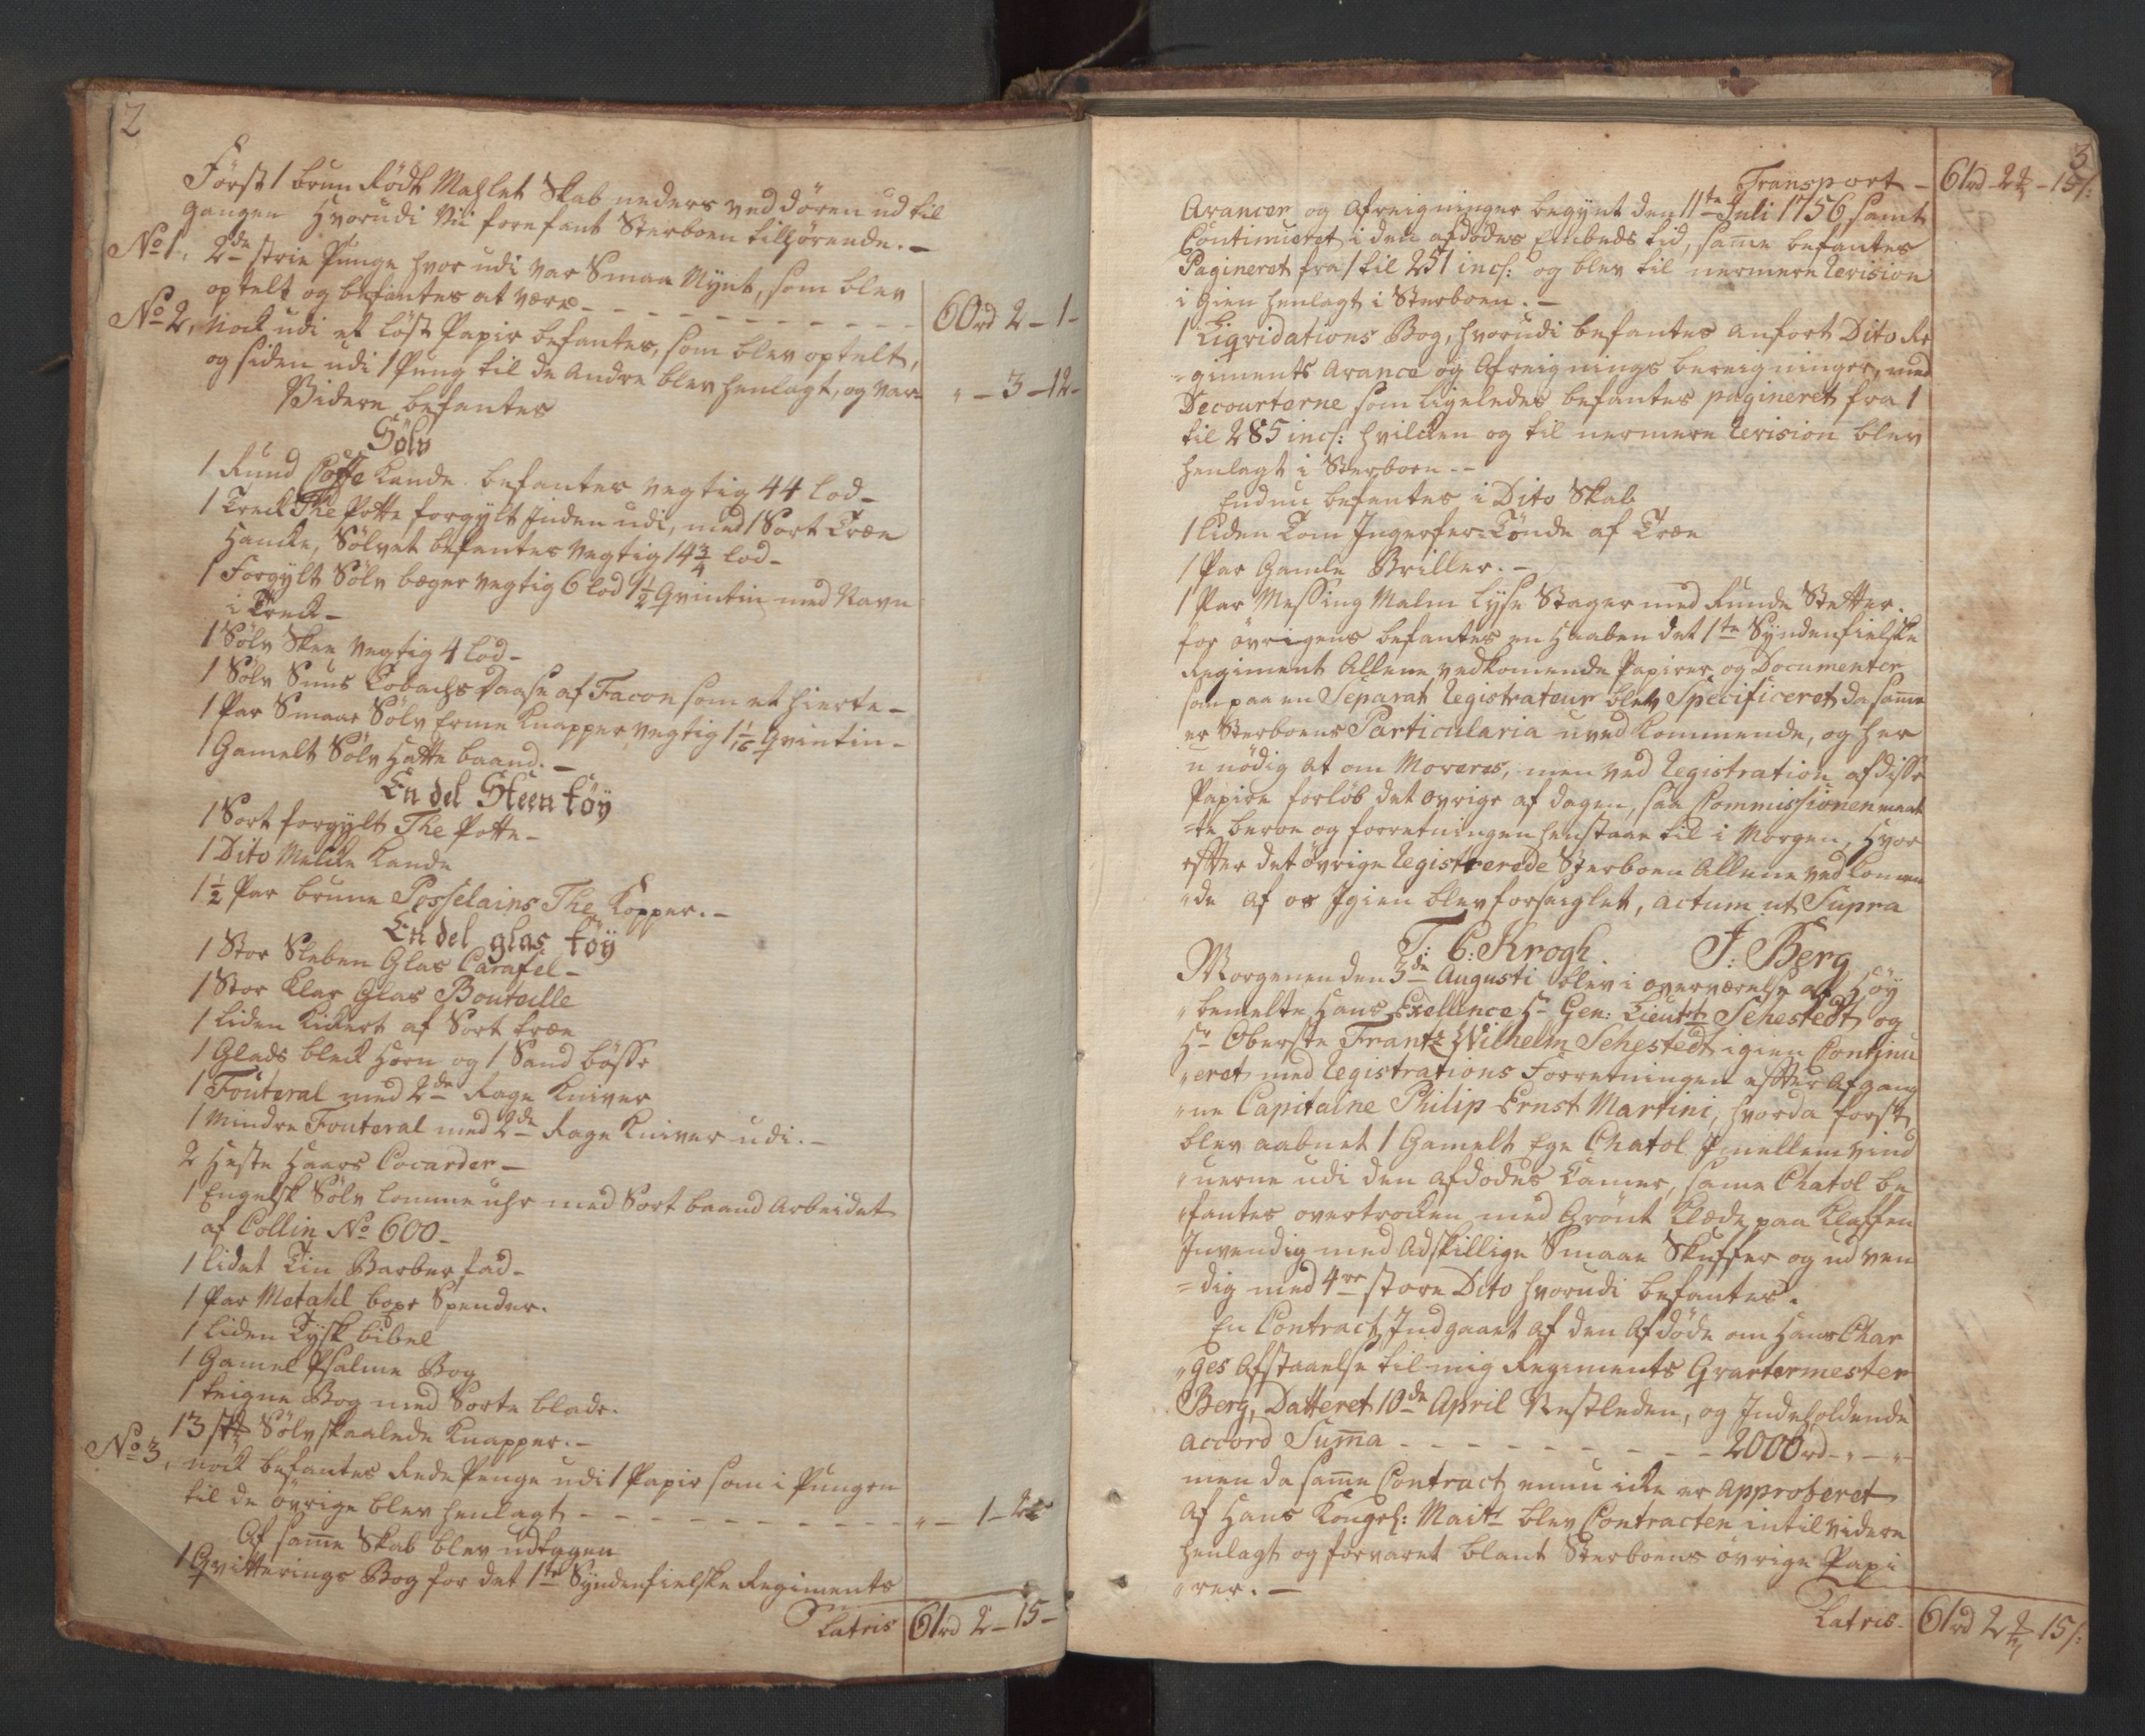 2
Först 1 brun Rödt Mahlet Skab neders ved dören ud til
gangen hvorudi Vii forefant Sterboen tilhörende. -
No 1, 2de strie Punge hvor udi var Smaa Mynt, som blev
optelt og befantes at være - - - 60 rd 2 - 1 -
No 2, Nock udi et löst Papir befantes, som blev optelt,
og siden udi 1 Pung til de Andre blev henlagt, og var " - 3 - 12 -
Videre befantes
Sölv
1 Rund Coffe Kande befantes vegtig 44 lod -
1 Treck The Potte forgylt Inden udi, med 1 Sort Træe
Hancke, Sölvet befantes vegtig 14 3/4 lod -
1 Forgylt Sölv bæger vegtig 6 lod 1 1/2 Qvintin med Navn
i Treck -
1 Sölv Skee vegtig 4 lod -
1 Sölv Snus Tobachs daase af Facon som et hierte -
1 Par Smaae Sölv Erme Knapper, vegtig 1 1/16 Qvintin -
1 Gamelt Sölv Hatte baand. -
En del Steen töy
1 Sort forgylt The Potte -
1 Dito Melcke Kande
1 1/2 Par brune Posselains The Kopper. -
En del glas töy
1 Stor Sleben Glas Carafel -
1 Stor Klar Glas Bouteille
1 liden Kickert af Sort træe
1 Glads bleck Horn og 1 Sand bösse
1 Fouteral med 2de Rage Kniver
1 Mindre Fouteral med 2de Rage Kniver udi. -
2 Heste Haars Cocarder -
1 Engelsk Sölv lomme uhr med Sort baand Arbeidet
af Collin No 600 -
1 lidet Tin Barber fad -
1 Par Metahl boxe Spender.
1 liden Tysk bibel
1 Gamel Psalme Bog
1 teigne Bog med Sorte blade.
13 stk Sölv skaalede Knapper. -
No 3, nock befantes Rede Penge udi 1 Papir som i Pungen
til de övrige blev henlagt - - - " - 1 - 2
Af samme Skab blev udtagen
1 Qvitterings Bog for det 1te Syndenfielske Regiments
Latris 61 rd 2 - 15 -
3
Transport - 61 rd - 2 - 15 s:
Arancer og Afreigninger begynt den 11te Juli 1756 samt
Continueret i den afdödes Embeds tid, samme befantes
Pagineret fra 1 til 251 incl: og blev til nermere Revision
i gien henlagt i Sterboen. -
1 Liqvidations Bog, hvorudi befantes anfort Dito Re
=giments Arance og Afreignings bereigninger, med
Decourterne som ligeledes befantes pagineret fra 1
til 285 incl: hvilcken og til nermere Revision blev
henlagt i Sterboen - -
Endnu befantes i Dito Skab
1 liden Tom Ingerfer=Tönde af Træe
1 Par Gamle Briller. -
1 Par Messing Malm Lyse Stager med Runde Stetter.
for övrigens befantes en Haaben det 1te Syndenfielske
Regiment Allene vedkomende Papirer og Documenter
som paa en Separat Registrateur blev Specificeret da samme
er Sterboens Particularia uvedkommende, og her
u nödig at om Moveres, men ved Registration af disse
Papire forlöb det övrige af dagen, saa Commissionen maat
=te beroe og forretningen henstaae til i Morgen, Hvor
efter det övrige Registrerede Sterboen Allene vedkommen
"de af os Igien blev forseiglet, actum ut Supra
T: C: Krogh. J: Berg
Morgenen den 3de Augusti blev i overværelse af Höy
"bemelte Hans Exellence Hr Gen: Lieutnt Sehestedt og
Hr Oberste Frantz Wilhelm Sehestedt igien Continu
"eret med Registrations Forretningen efter Afgang
"ne Capitaine Philip Ernst Martini, hvorda först
blev aabnet 1 Gamelt Ege Chatol Imellem vind
"uerne udi den Afdödes Camer, samme Chatol be
"fantes overtrocken med Grönt Klæde paa Klaffen
Invendig med Adskillige Smaae Skuffer og udven
=dig med 4re store Dito hvorudi befantes.
En Contract Indgaaet af den Afdöde om Hans Char
"ges Afstaaelse til mig Regiments Qvartermester
Berg, Datteret 10de April Nestleden, og Indeholdende
Accord Summa - - - 2000 rd - " - "
men da samme Contract ennu icke er Approberet
Af Hans Kongel: Maitt blev Contracten intil videre
henlagt og forvaret blant Sterboens övrige Papi
"rer. -
Latris - 61 rd 2 15 s: